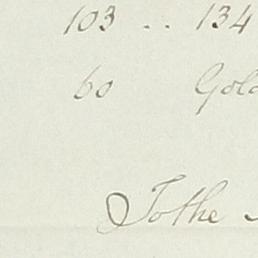 103 .. 134
60 Gold
To the